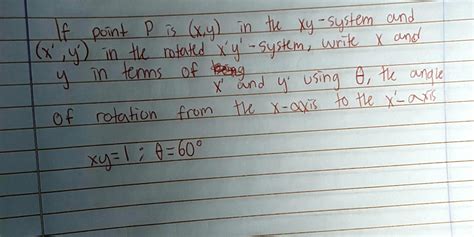 If point P is (x,y) in the xy-system and
(x', y') in the rotated x'y'-system, write x and
y in terms of x' and y' using θ, the angle
of rotation from the x-axis to the x'-axis
xy=1 ; θ=60°